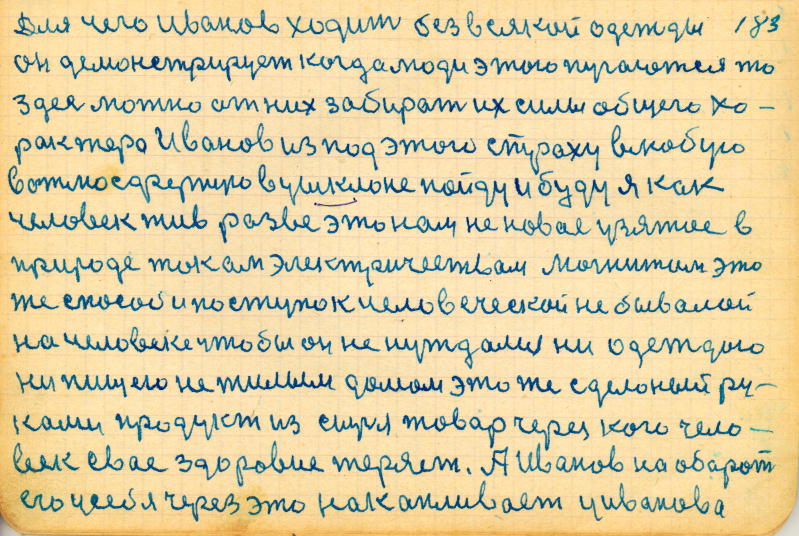 Для чего Иванов ходит без всякой одежды 183
он демонстрирует когда люди этого пугаются то
здея можно от них забират их силы общего ха-
рактера Иванов из под этого страху в любую
в атмосферную в у циклоне пойду и буду я как
человек жив разве это нам не новае узятое в
природе током электричеством могнитом это
же способ и поступок человеческой не бывалой
на человеке чтобы он не нуждался ни одеждою
ни пищею не жилым домом это же сделоный ру-
ками продукт из сырья товар через кого чело-
век свае здоровие теряет. А Иванов на обарот
его у себя через это накапливает у иванова